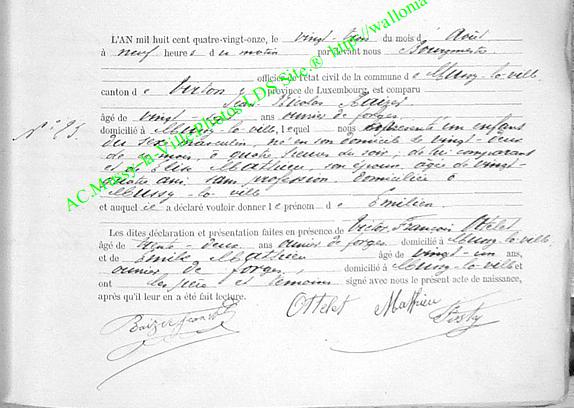 L'AN mil huit cent quatre-vingt-onze, le vingt-trois du mois d'Août
à neuf heures du matin par devant nous Bourgmestre
officier de l'état civil de la commune de Mussy-la-ville,
canton de Virton, province de Luxembourg, est comparu
Jean Nicolas Baizer
âgé de vingt- ans ouvrier de forges,
N° 23.
domicilié à Mussy-la-ville, lequel nous a présenté un enfant
du sexe masculin, né en son domicile le vingt-deux
de ce mois, à quatre heures du soir, de lui comparant
et d'Elise Mathieu, son épouse, âgée de vingt-
quatre ans, sans profession, domiciliée à
Mussy-la-ville
et auquel il a déclaré vouloir donner le prénom d'Emilien.
Les dites déclaration et présentation faites en présence de Victor François Ottelet
âgé de trente-deux ans ouvrier de forges, domicilié à Mussy-la-ville,
et de Emile Mathieu âgé de vingt-un ans,
ouvrier de forges, domicilié à Mussy-la-ville et
ont les père et témoins signé avec nous le présent acte de naissance,
après qu'il leur en a été fait lecture.
Ottelet Mathieu
AC.Mussy-la-Ville Photos LDS Site.® http://wallonia